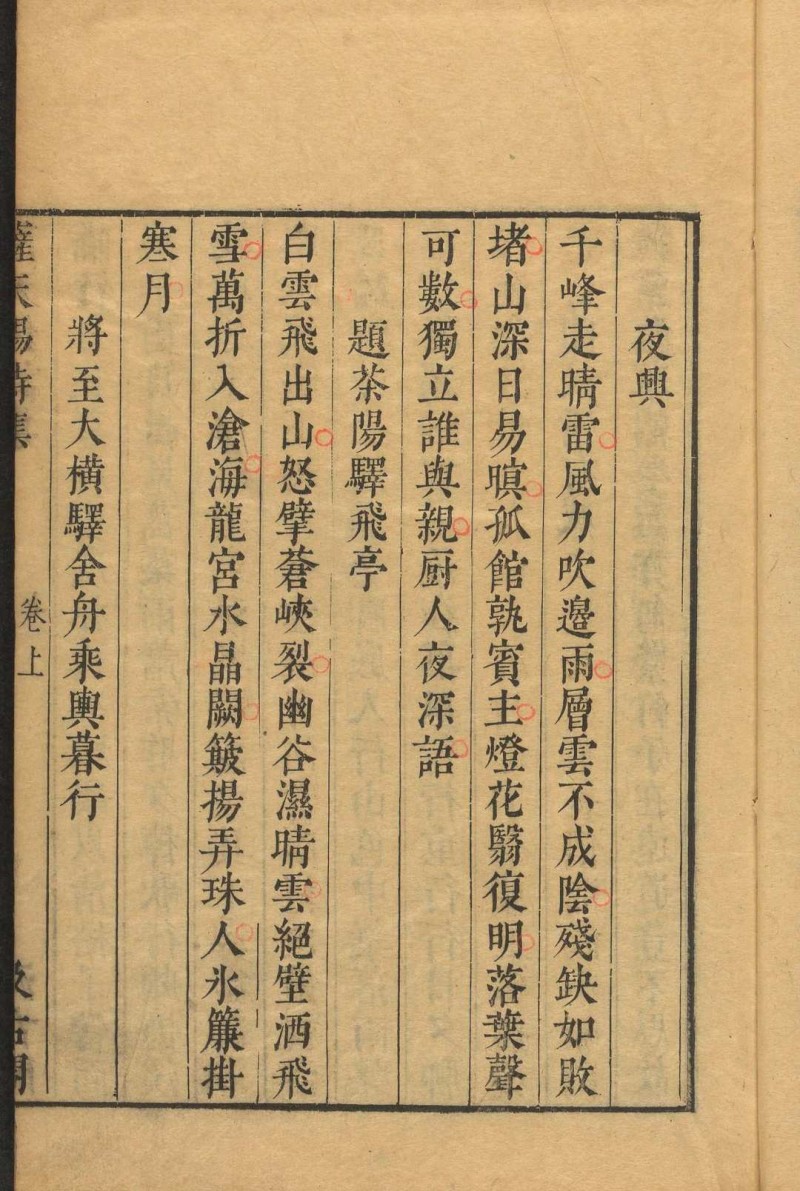 夜興
千峰走晴雷風力吹邉雨層雲不成陰殘缺如敗
堵山深日易暝孤館孰賓主燈花翳復明落葉聲
可數獨立誰與親厨人夜深語
題茶陽驛飛亭
白雲飛出山怒擘蒼峽裂幽谷濕晴雲絕壁洒飛
雪萬折入滄海龍宮水晶闕簸揚弄珠人氷簾掛
寒月
將至大橫驛舍舟乘輿暮行
薩天錫詩集
卷上
汲古閣